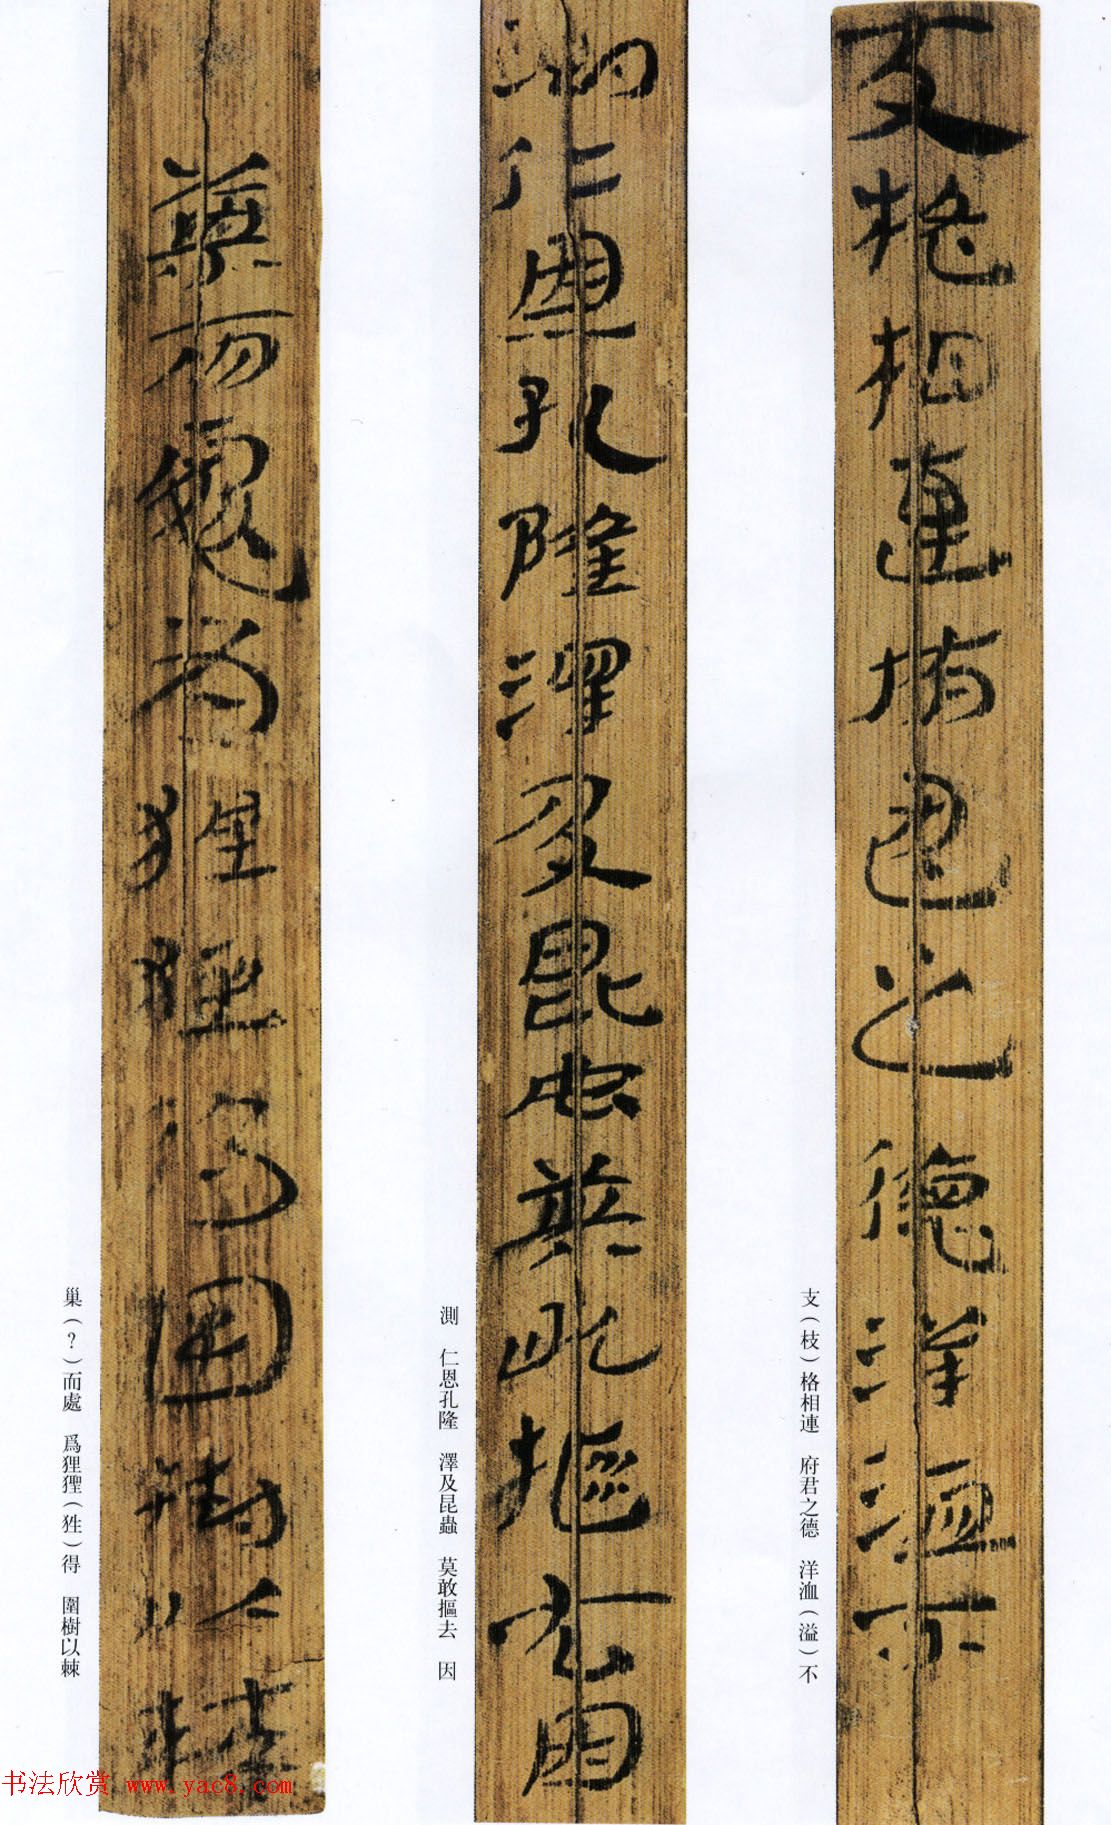 支格相連府君之德洋洫不
支（枝）格相連　府君之德　洋洫（溢）不
測仁恩孔隆澤及昆虫莫敢摳去因
測　仁恩孔隆　澤及昆蟲　莫敢摳去　因
而處為狸狌得圍樹以棘
巢（？）而處　爲狸狸（狌）得　圍樹以棘
书法欣赏 www.yac8.com